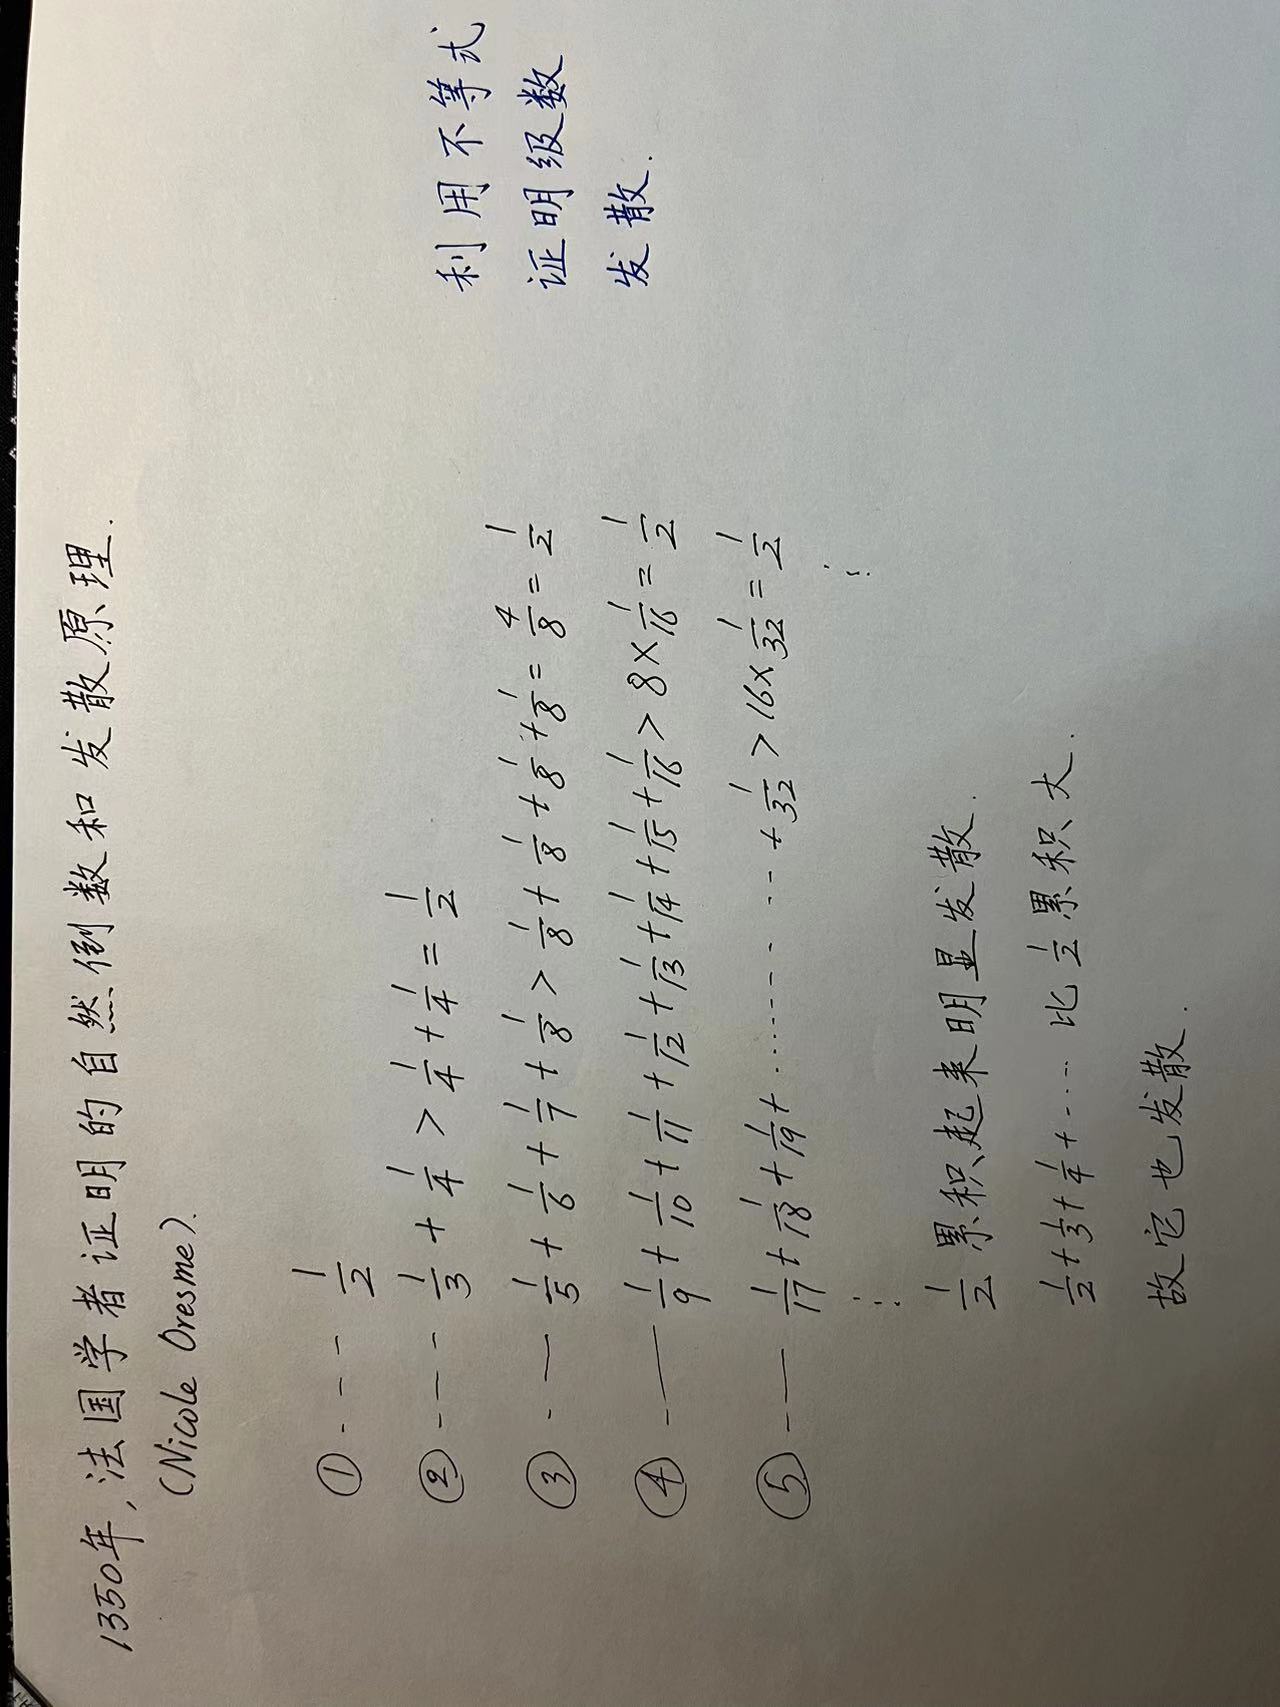 1350年,法国学者证明的自然倒数和发散原理.
(Nicole Oresme).
① --- 1/2
② --- 1/3 + 1/4 > 1/4 + 1/4 = 1/2
③ -— 1/5 + 1/6 + 1/7 + 1/8 > 1/8 + 1/8 + 1/8 + 1/8 = 4/8 = 1/2
④ -— 1/9 + 1/10 + 1/11 + 1/12 + 1/13 + 1/14 + 1/15 + 1/16 > 8 × 1/16 = 1/2
⑤ -— 1/17 + 1/18 + 1/19 + ............ + 1/32 > 16 × 1/32 = 1/2
⋮ ⋮
1/2 累积起来明显发散.
1/2 + 1/3 + 1/4 + .... 比 1/2 累积大.
故它也发散.
利用不等式
证明级数
发散.